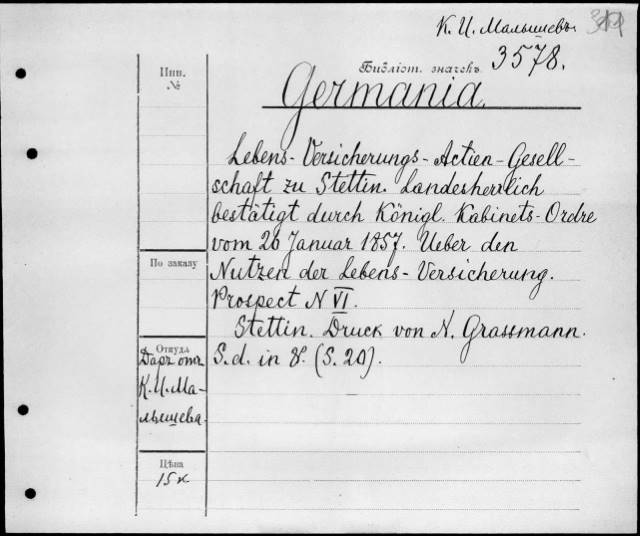 К. И. Малышевъ.
Инв. №
Библіот. значекъ 3578.
Germania.
Lebens-Versicherungs-Actien-Gesell-
schaft zu Stettin. Landesherrlich
bestätigt durch Königl. Kabinets-Ordre
vom 26 Januar 1857. Ueber den
По заказу
Nutzen der Lebens-Versicherung.
Prospect N VI.
Stettin. Druck von N. Grassmann.
Откуда
Даръ отъ
S. d. in 8°. (S. 20).
К. И. Ма-
лышева.
Цѣна
15 к